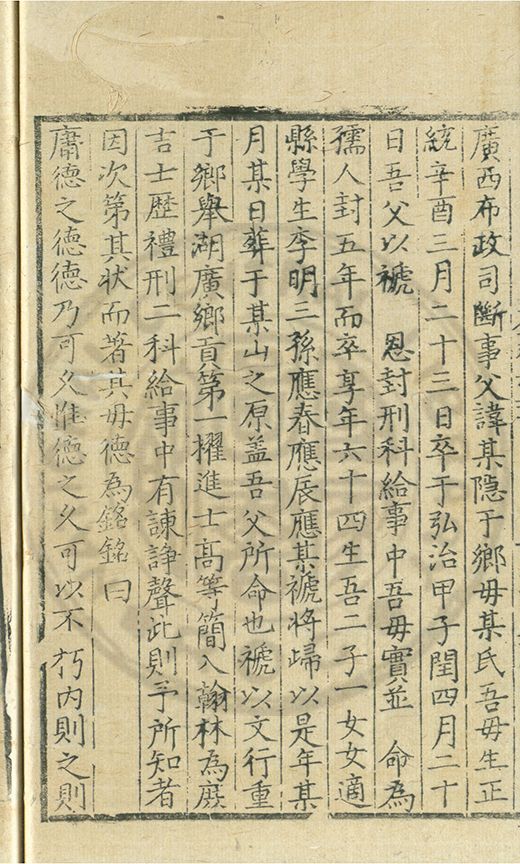 廣西布政司斷事父諱某隱于鄉母某氏吾母生正
統辛酉三月二十三日卒于弘治甲子閏四月二十
日吾父以禠 恩封刑科給事中吾母實並 命為
孺人封五年而卒享年六十四生吾二子一女女適
縣學生李明三孫應春應辰應某禠將歸以是年某
月某日葬于某山之原葢吾父所命也禠以文行重
于鄉舉湖廣鄉貢第一擢進士高等簡入翰林為庶
吉士歷禮刑二科給事中有諫諍聲此則予所知者
因次第其状而著其母德為銘銘曰
庸德之德德乃可久惟德之久可以不朽内則之則